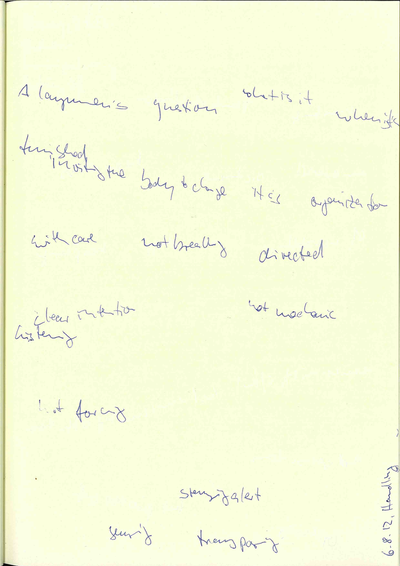 A layman's question what is it when it is
finished
inviting the body to change it is organization
with care not directed
clear intention not mechanic
listening
not forcing
alert
sensing
6.8.12, Handling